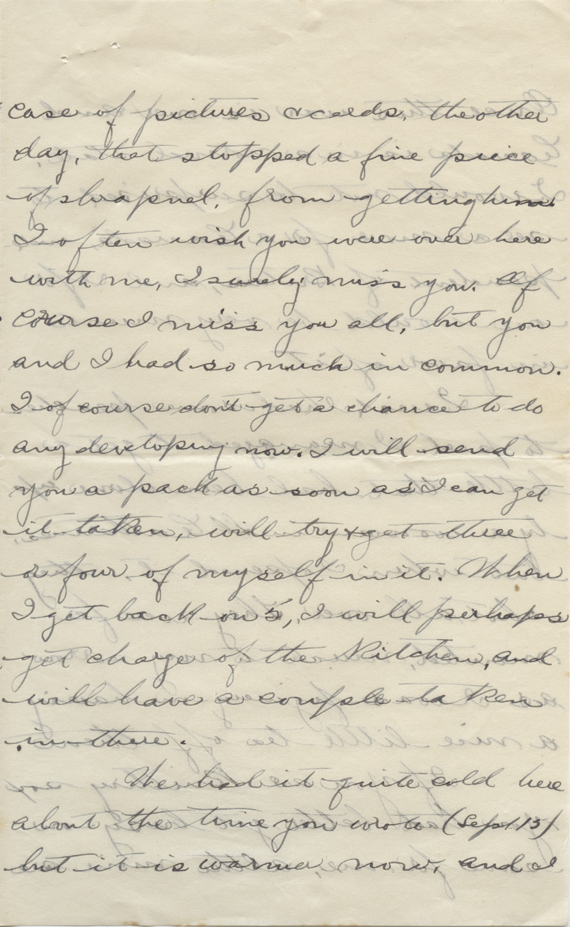 case of pictures & cards, the other
day, that stopped a fine peice
of shrapnel, from getting him.
I often wish you were over here
with me, I surely miss you. Of
course I miss you all, but you
and I had so much in common.
I of course don't get a chance to do
any developing now. I will send
you a pack as soon as I can get
it taken, will try & get three
or four of myself in it. When
I get back on 5, I will perhaps
get charge of the Kitchen, and
will have a couple taken
in there.
We had it quite cold here
about the time you wrote (Sept. 15)
but it is warm, now, and I